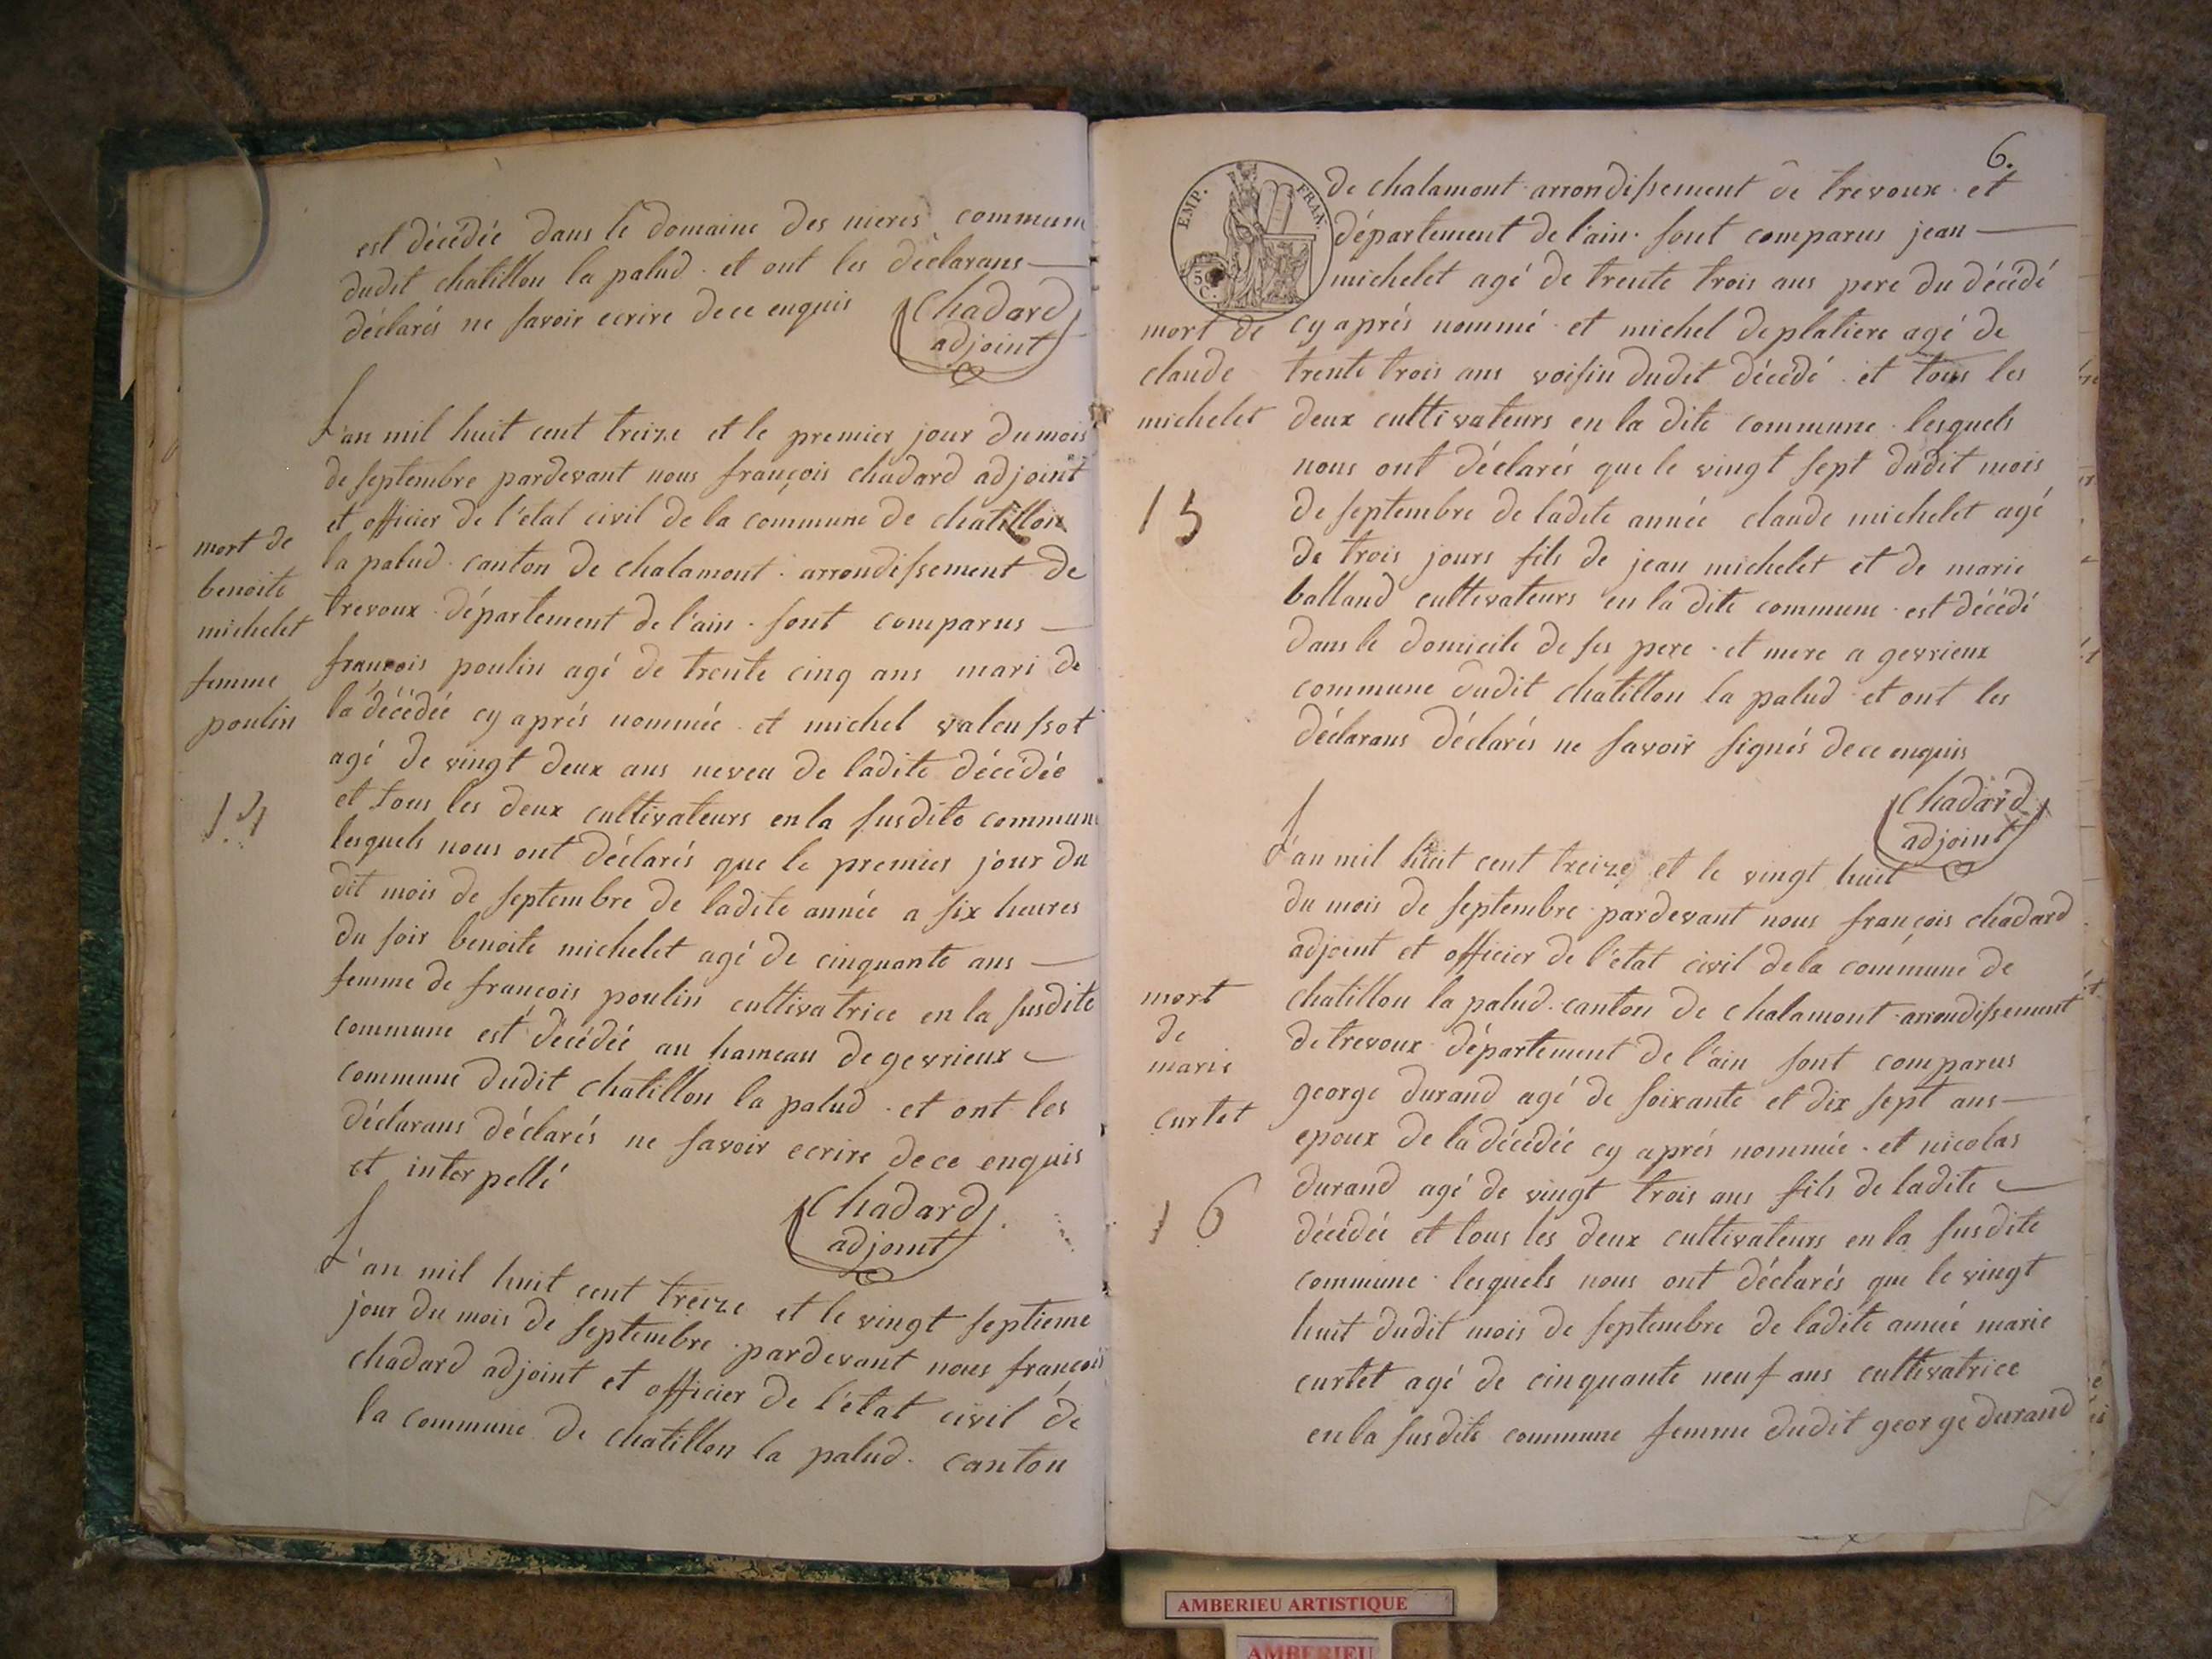 est décédée dans le domaine des nieres commune
dudit chatillon la palud. et ont les déclarans
déclarés ne savoir ecrire de ce enquis
Chadard
adjoint
L'an mil huit cent treize et le premier jour du mois
de septembre pardevant nous françois chadard adjoint
et officier de l'état civil de la commune de chatillon
la palud. canton de chalamont. arrondissement de
trevoux. département de l'ain. sont comparus
françois poulin agé de trente cinq ans mari de
la décédée cy aprés nommée. et michel valenssot
agé de vingt deux ans neveu de ladite décédée
et tous les deux cultivateurs en la susdite commune
lesquels nous ont déclarés que le premier jour du
dit mois de septembre de ladite année a six heures
du soir benoite michelet agé de cinquante ans
femme de françois poulin cultivatrice en la susdite
commune est décédée au hameau de gevrieux
commune dudit chatillon la palud. et ont les
déclarans déclarés ne savoir ecrire de ce enquis
et interpellé
Chadard
adjoint
mort de
benoite
michelet
femme
poulin
14
L'an mil huit cent treize et le vingt septieme
jour du mois de septembre. pardevant nous françois
chadard adjoint et officier de l'état civil de
la commune de chatillon la palud. canton
6.
EMP. FRAN.
50
C.
de chalamont arrondissement de trevoux. et
département de l'ain. sont comparus jean
michelet agé de trente trois ans pere du décédé
cy aprés nommé. et michel deplatiere agé de
trente trois ans voisin dudit décédé. et tous les
deux cultivateurs en la dite commune. lesquels
nous ont déclarés que le vingt sept dudit mois
de septembre de ladite année claude michelet agé
de trois jours fils de jean michelet et de marie
balland cultivateurs en la dite commune. est décédé
dans le domicile de ses pere. et mere a gevrieux
commune dudit chatillon la palud. et ont les
déclarans déclarés ne savoir signés de ce enquis
Chadard
adjoint
mort de
claude
michelet
15
L'an mil huit cent treize et le vingt huit
du mois de septembre. pardevant nous françois chadard
adjoint et officier de l'état civil de la commune de
chatillon la palud. canton de chalamont. arrondissement
de trevoux. département de l'ain sont comparus
george durand agé de soixante et dix sept ans
epoux de la décédée cy aprés nommée. et nicolas
durand agé de vingt trois ans fils de ladite
décédée et tous les deux cultivateurs en la susdite
commune. lesquels nous ont déclarés que le vingt
huit dudit mois de septembre de ladite année marie
curtet agé de cinquante neuf ans cultivatrice
en la susdite commune femme dudit george durand
mort
de
marie
curtet
16
AMBERIEU ARTISTIQUE
AMBERIEU